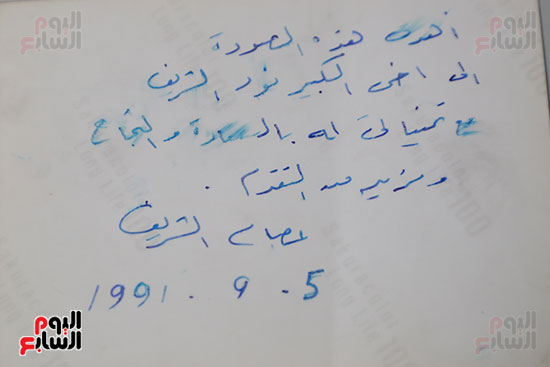 أهدى هذه الصورة
الى اخى الكبير نور الشريف
مع تمنياتى له بالسعادة والنجاح
ومزيد من التقدم .
عصام الشريف
1991 . 9 . 5
اليوم السابع
اليوم السابع
اليوم السابع
اليوم السابع